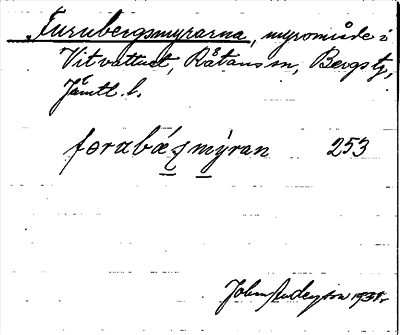 Furubergsmyrarna, myrområde i
Vitvattnet, Råtans sn, Bergs tg,
Jämtl. l.
forabæʃmýran 253
John Anderson 1935.